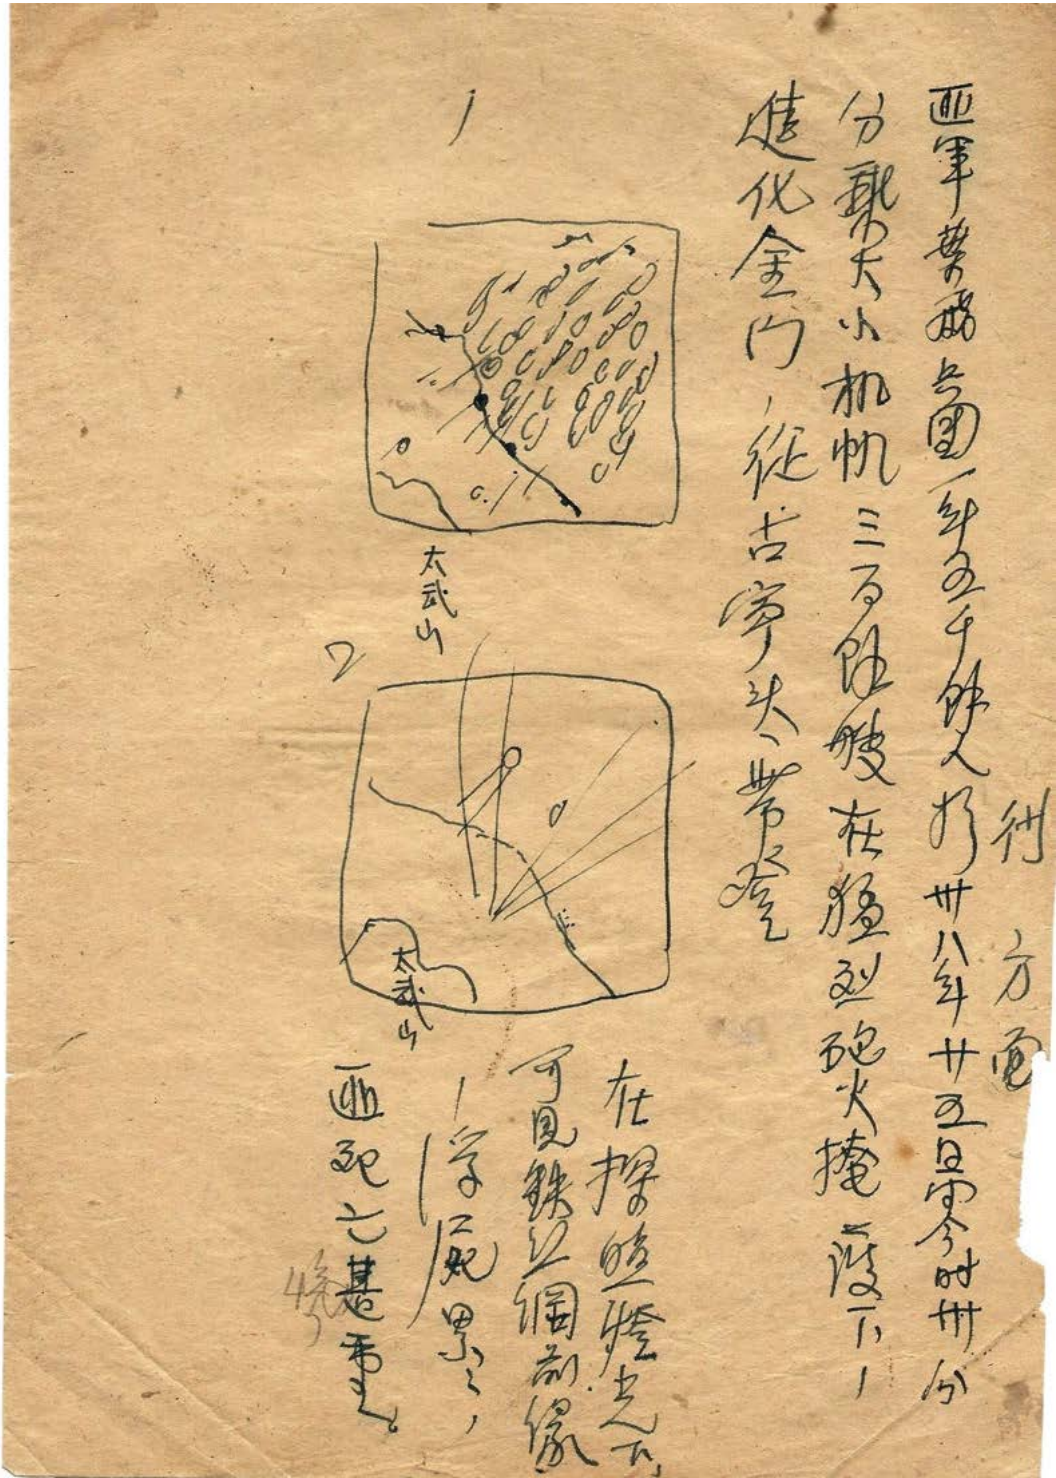 方面
匪軍葉飛兵團一五千餘人於卅八年廿五日时卅分
分乘大小机帆三百餘艘在猛烈砲火掩護下，
進犯金门，從古寧头一带登
1
太武山
2
太武山
在探照燈光下，
可見鉄丝網前缘
，浮屍累々，
匪死亡甚重。